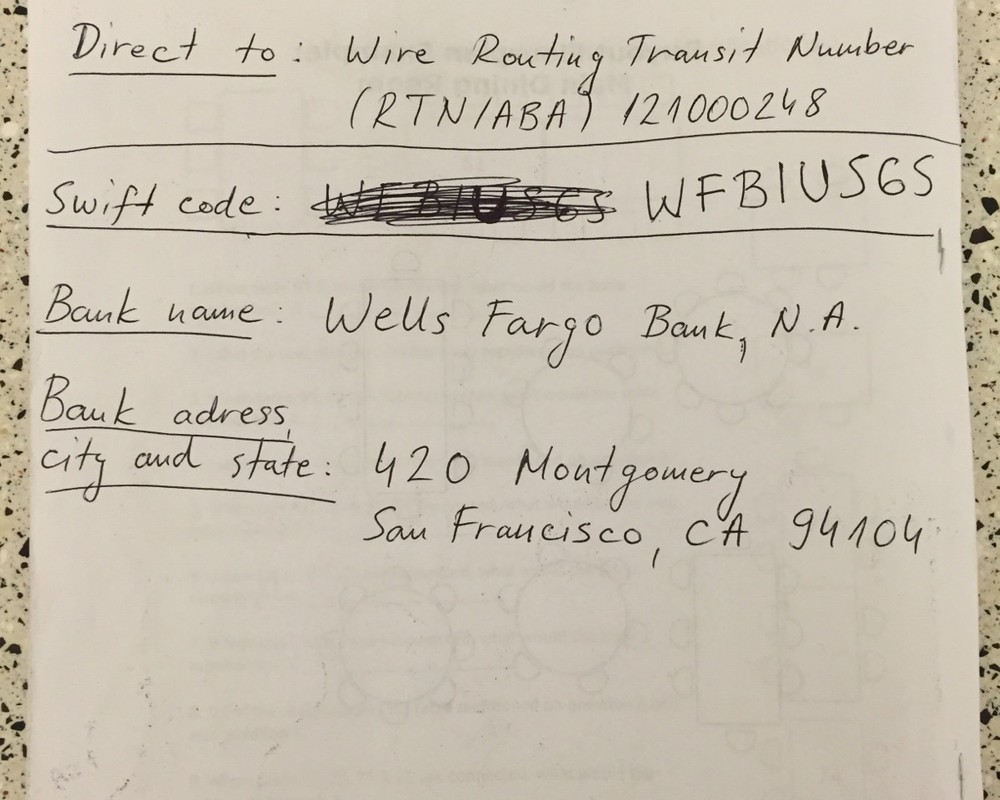 Direct to: Wire Routing Transit Number
(RTN/ABA) 121000248
Swift code: WFBIUS6S WFBIUS6S
Bank name: Wells Fargo Bank, N.A.
Bank adress,
city and state: 420 Montgomery
San Francisco, CA 94104